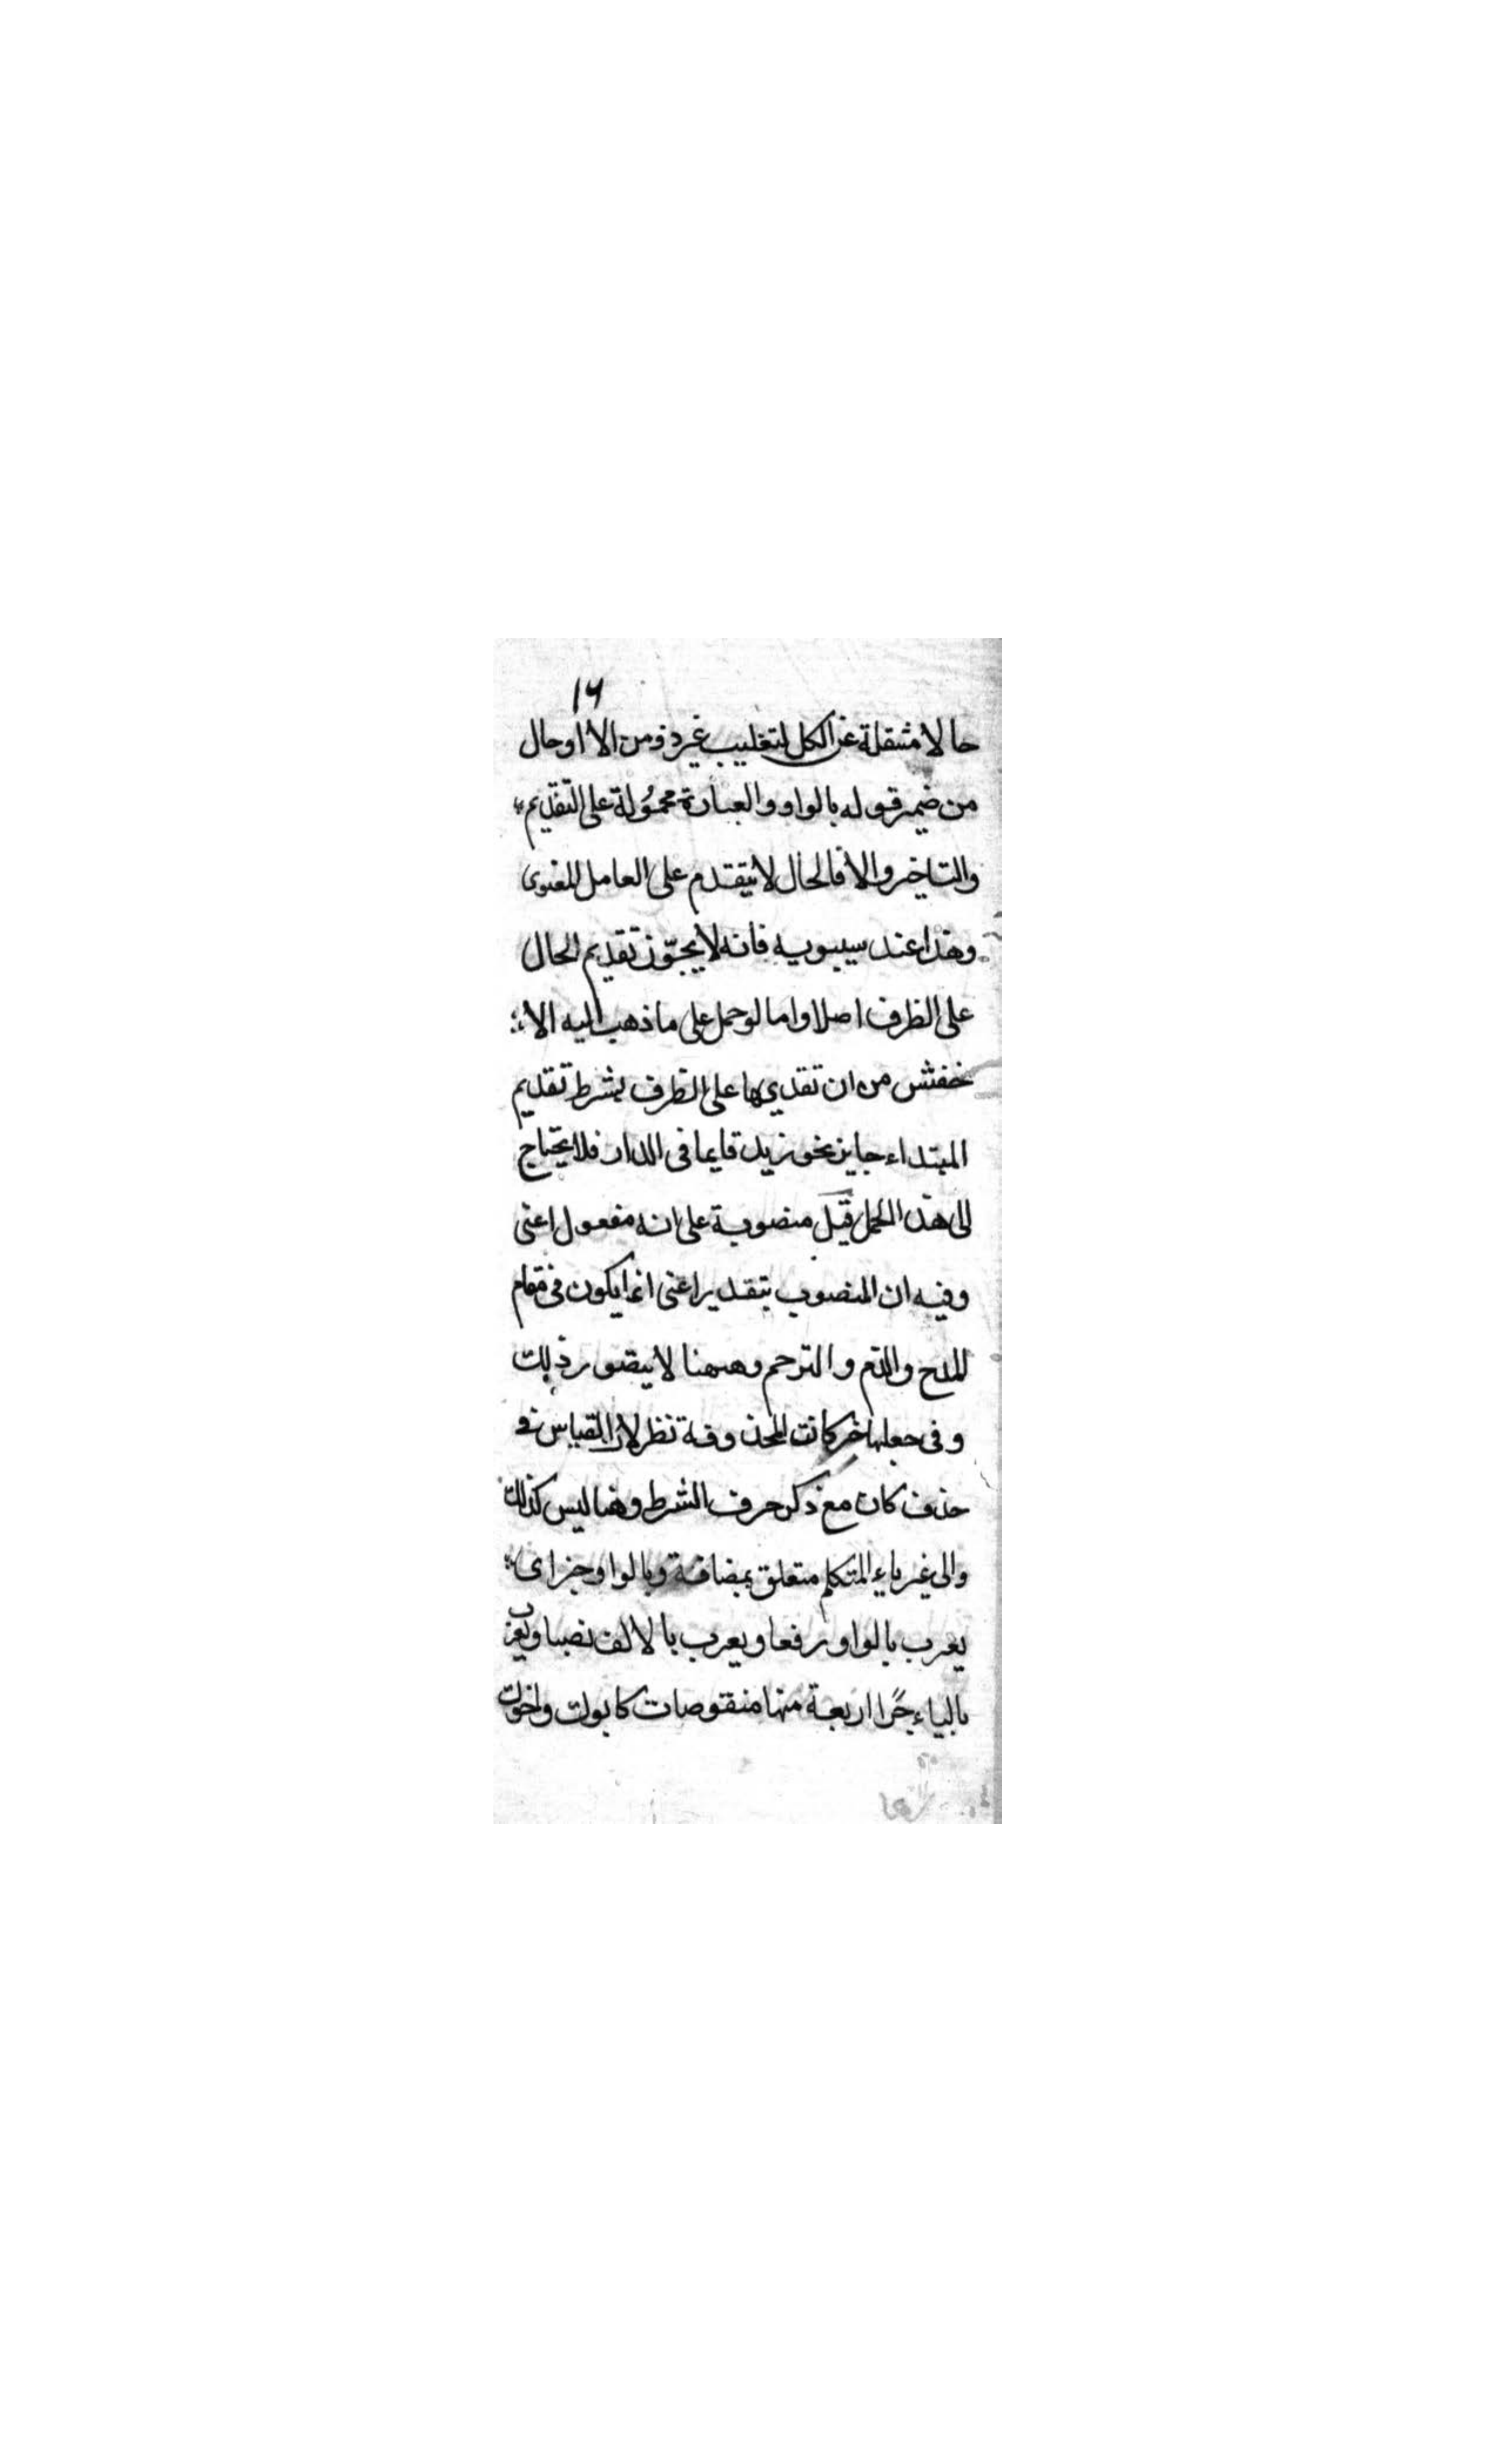 ١٦
حالا منتقلة عن الكل لتغليب غير ذو من الا اوحال
من ضمير قوله بالواو والعبارة محمولة على التقديم
والتاخير والا فالحال لا يتقدم على العامل المعنوى
وهذا عند سيبويه فانه لا يجوّز تقديم الحال
على الظرف اصلا واما لو حمل على ما ذهب اليه الا
خفش من ان تقديمها على الظرف بشرط تقديم
المبتداء جايز نحو زيد قايما فى الدار فلا يحتاج
الى هذا الحمل قيل منصوبة على انه مفعول اعنى
وفيه ان المنصوب بتقدير اعنى انما يكون فى مقام
المدح والذم والترحم وههنا لا يتصور ذلك
وفى جعلها خبر كانت المحذوفة نظر لان القياس فى
حذف كان مع ذكر حرف الشرط وهنا ليس كذلك
والى غير ياء المتكلم متعلق بمضافة وبالواو خبر اى
يعرب بالواو رفعا ويعرب بالالف نصبا ويعرب
بالياء جرًا اربعة منها منقوصات كابوك واخوك